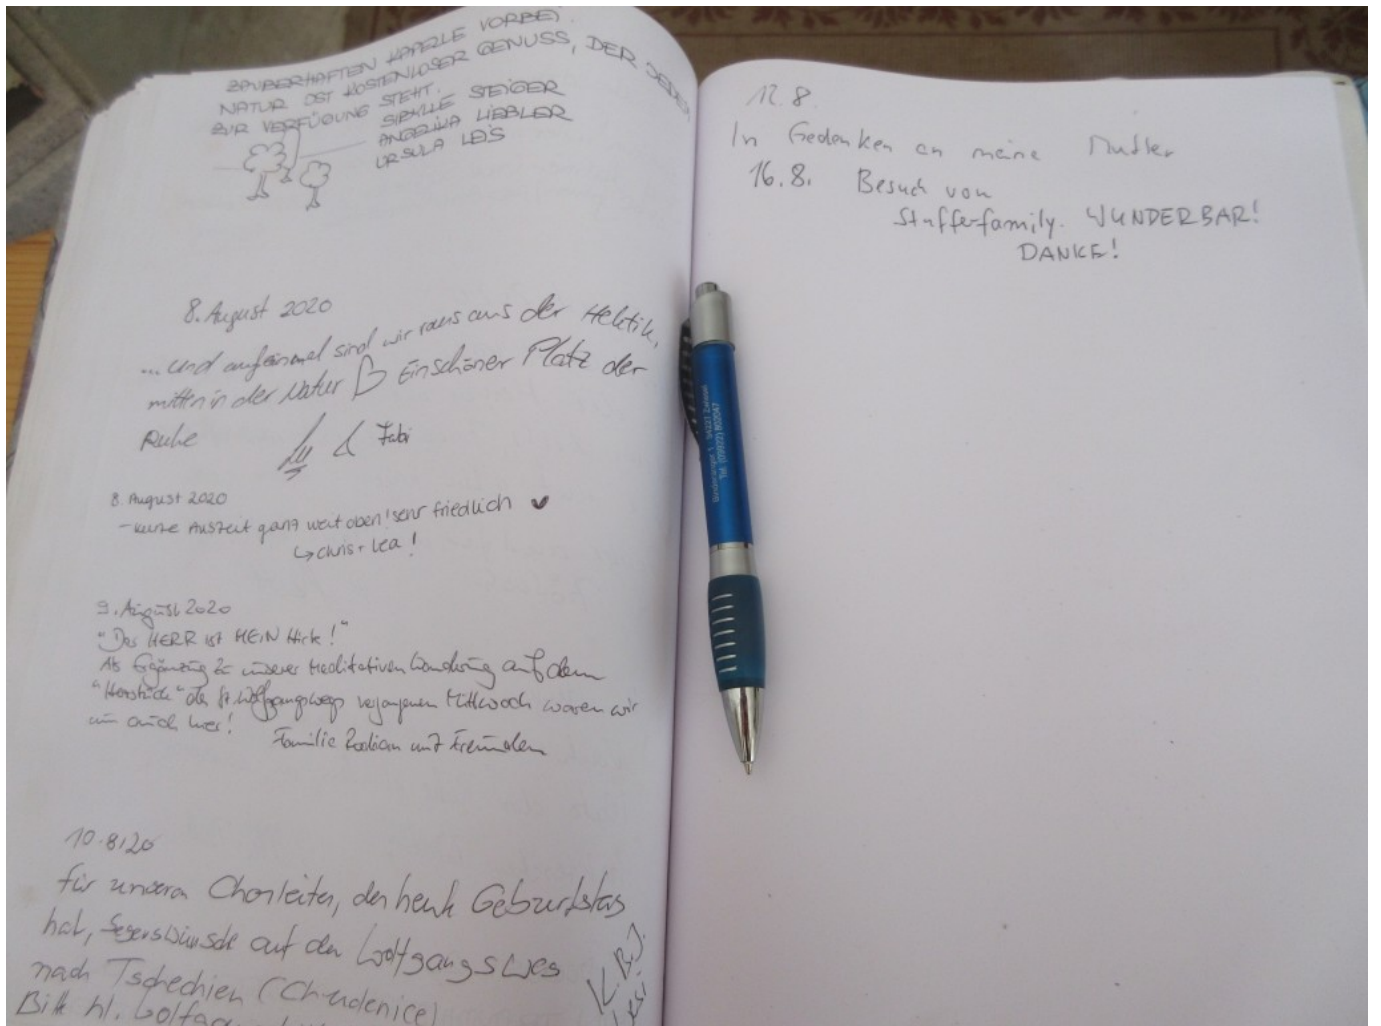 ZAUBERHAFTEN KAPELLE VORBEI.
NATUR IST KOSTENLOSER GENUSS, DER JEDEM
ZUR VERFÜGUNG STEHT.
SIBYLLE STEIGER
ANGELIKA LIEBLER
URSULA LEIS
8. August 2020
... und aufeinmal sind wir raus aus der Hektik,
mitten in der Natur Ein schöner Platz der
Ruhe
& Fabi
8. August 2020
- kurze Auszeit ganz weit oben! sehr friedlich ♥
↳ Chris + Lea!
9. August 2020
"Der HERR ist MEIN Hirte!"
Als Ergänzung zu unserer Meditativen Wanderung auf dem
"Herzstück" des St. Wolfgangwegs vergangenen Mittwoch waren wir
nun auch hier!
Familie und Freunden
10.8.20
für unseren Chorleiter, der heute Geburtstag
hat, Segenswünsche auf den Wolfgangsweg
nach Tschechien (Chudenice)
Bitte hl. Wolfgang
12.8.
In Gedenken an meine Mutter
16.8. Besuch von
Stufferfamily. WUNDERBAR!
DANKE!
94227 Zwiesel
Tel. (09922) 802047